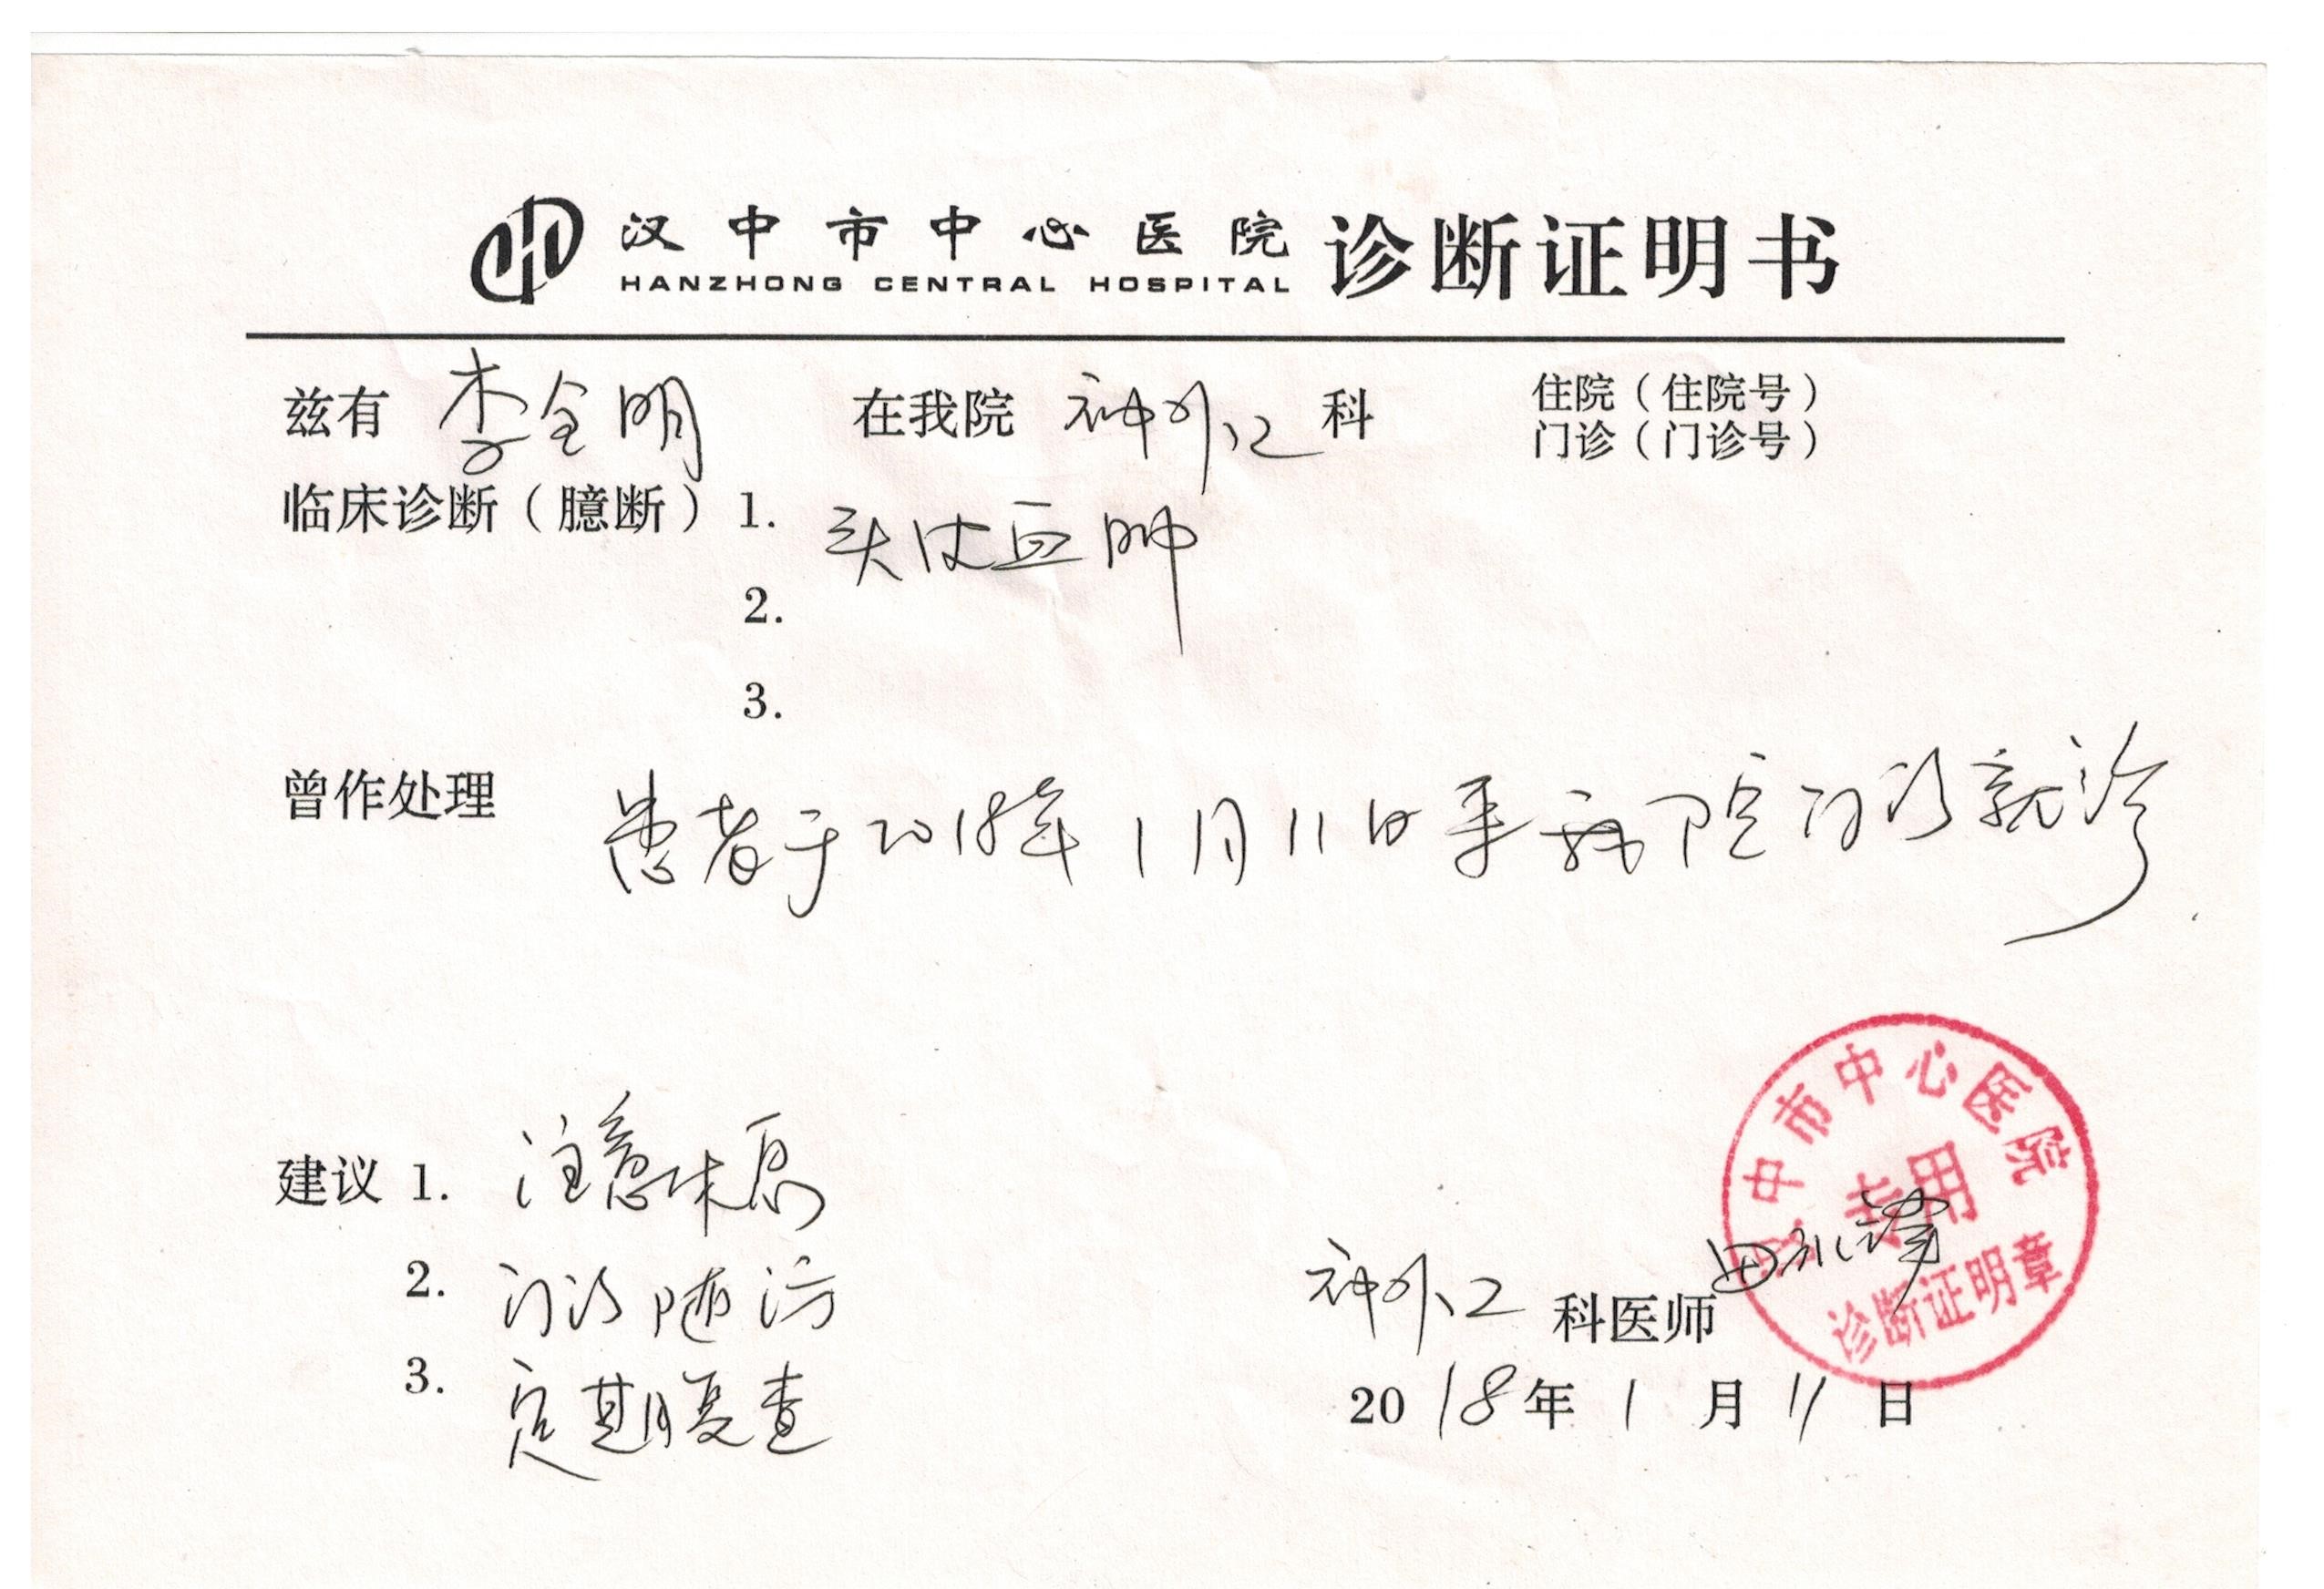 汉中市中心医院 诊断证明书
HANZHONG CENTRAL HOSPITAL
兹有 李全明 在我院 神外二 科 住院（住院号）
门诊（门诊号）
临床诊断（臆断）1. 头皮血肿
2.
3.
曾作处理 患者于2018年1月11日来我院门诊就诊
建议 1. 注意休息
2. 门诊随访
3. 定期复查
神外二 科医师 田
2018年1月11日
汉中市中心医院
专用
诊断证明章